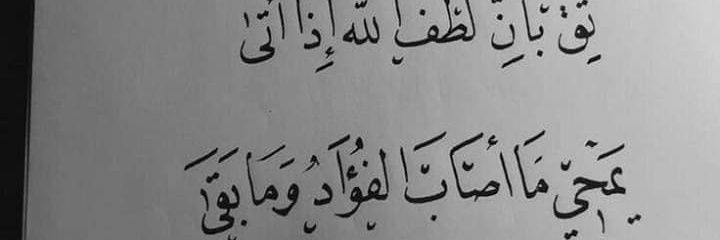 ثِقْ بَأنِّ لُطْفَ اللّه إِذَا أَتَى
يَمْحِيّ مَا أصَابَ الفُؤَادُ وَمَا بَقَىَ